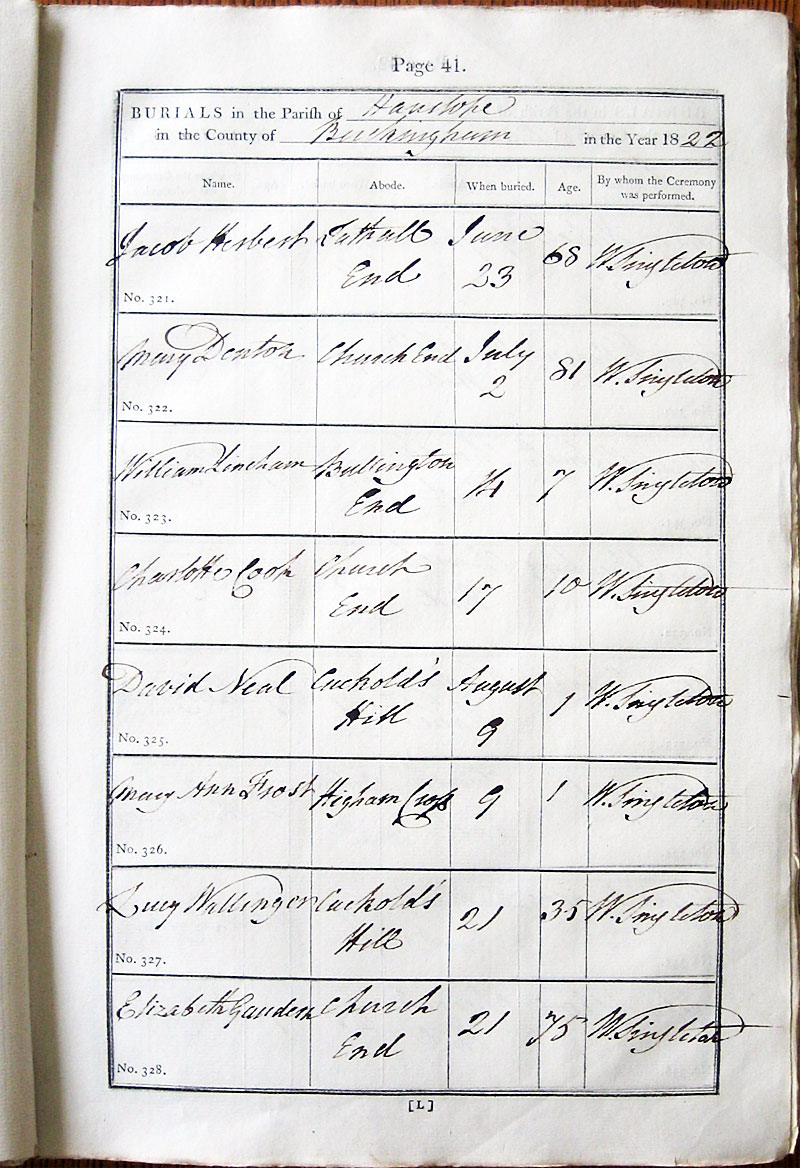 Page 41.
BURIALS in the Parish of Hanslope
in the County of Buckingham in the Year 1822
Name. Abode. When buried. Age. By whom the Ceremony was performed.
Jacob Herbert Tathall June 68 W. Singleton
End 23
No. 321.
Mary Denton Church End July 81 W. Singleton
2
No. 322.
William Lineham Bullington 14 7 W. Singleton
End
No. 323.
Charlotte Cook Church 17 10 W. Singleton
End
No. 324.
David Neal Cuckold's August 1 W. Singleton
Hill 9
No. 325.
Mary Ann Frost Higham Cross 9 1 W. Singleton
No. 326.
Lucy Willinger Cuckold's 21 35 W. Singleton
Hill
No. 327.
Elizabeth Church 21 75 W. Singleton
End
No. 328.
[L]